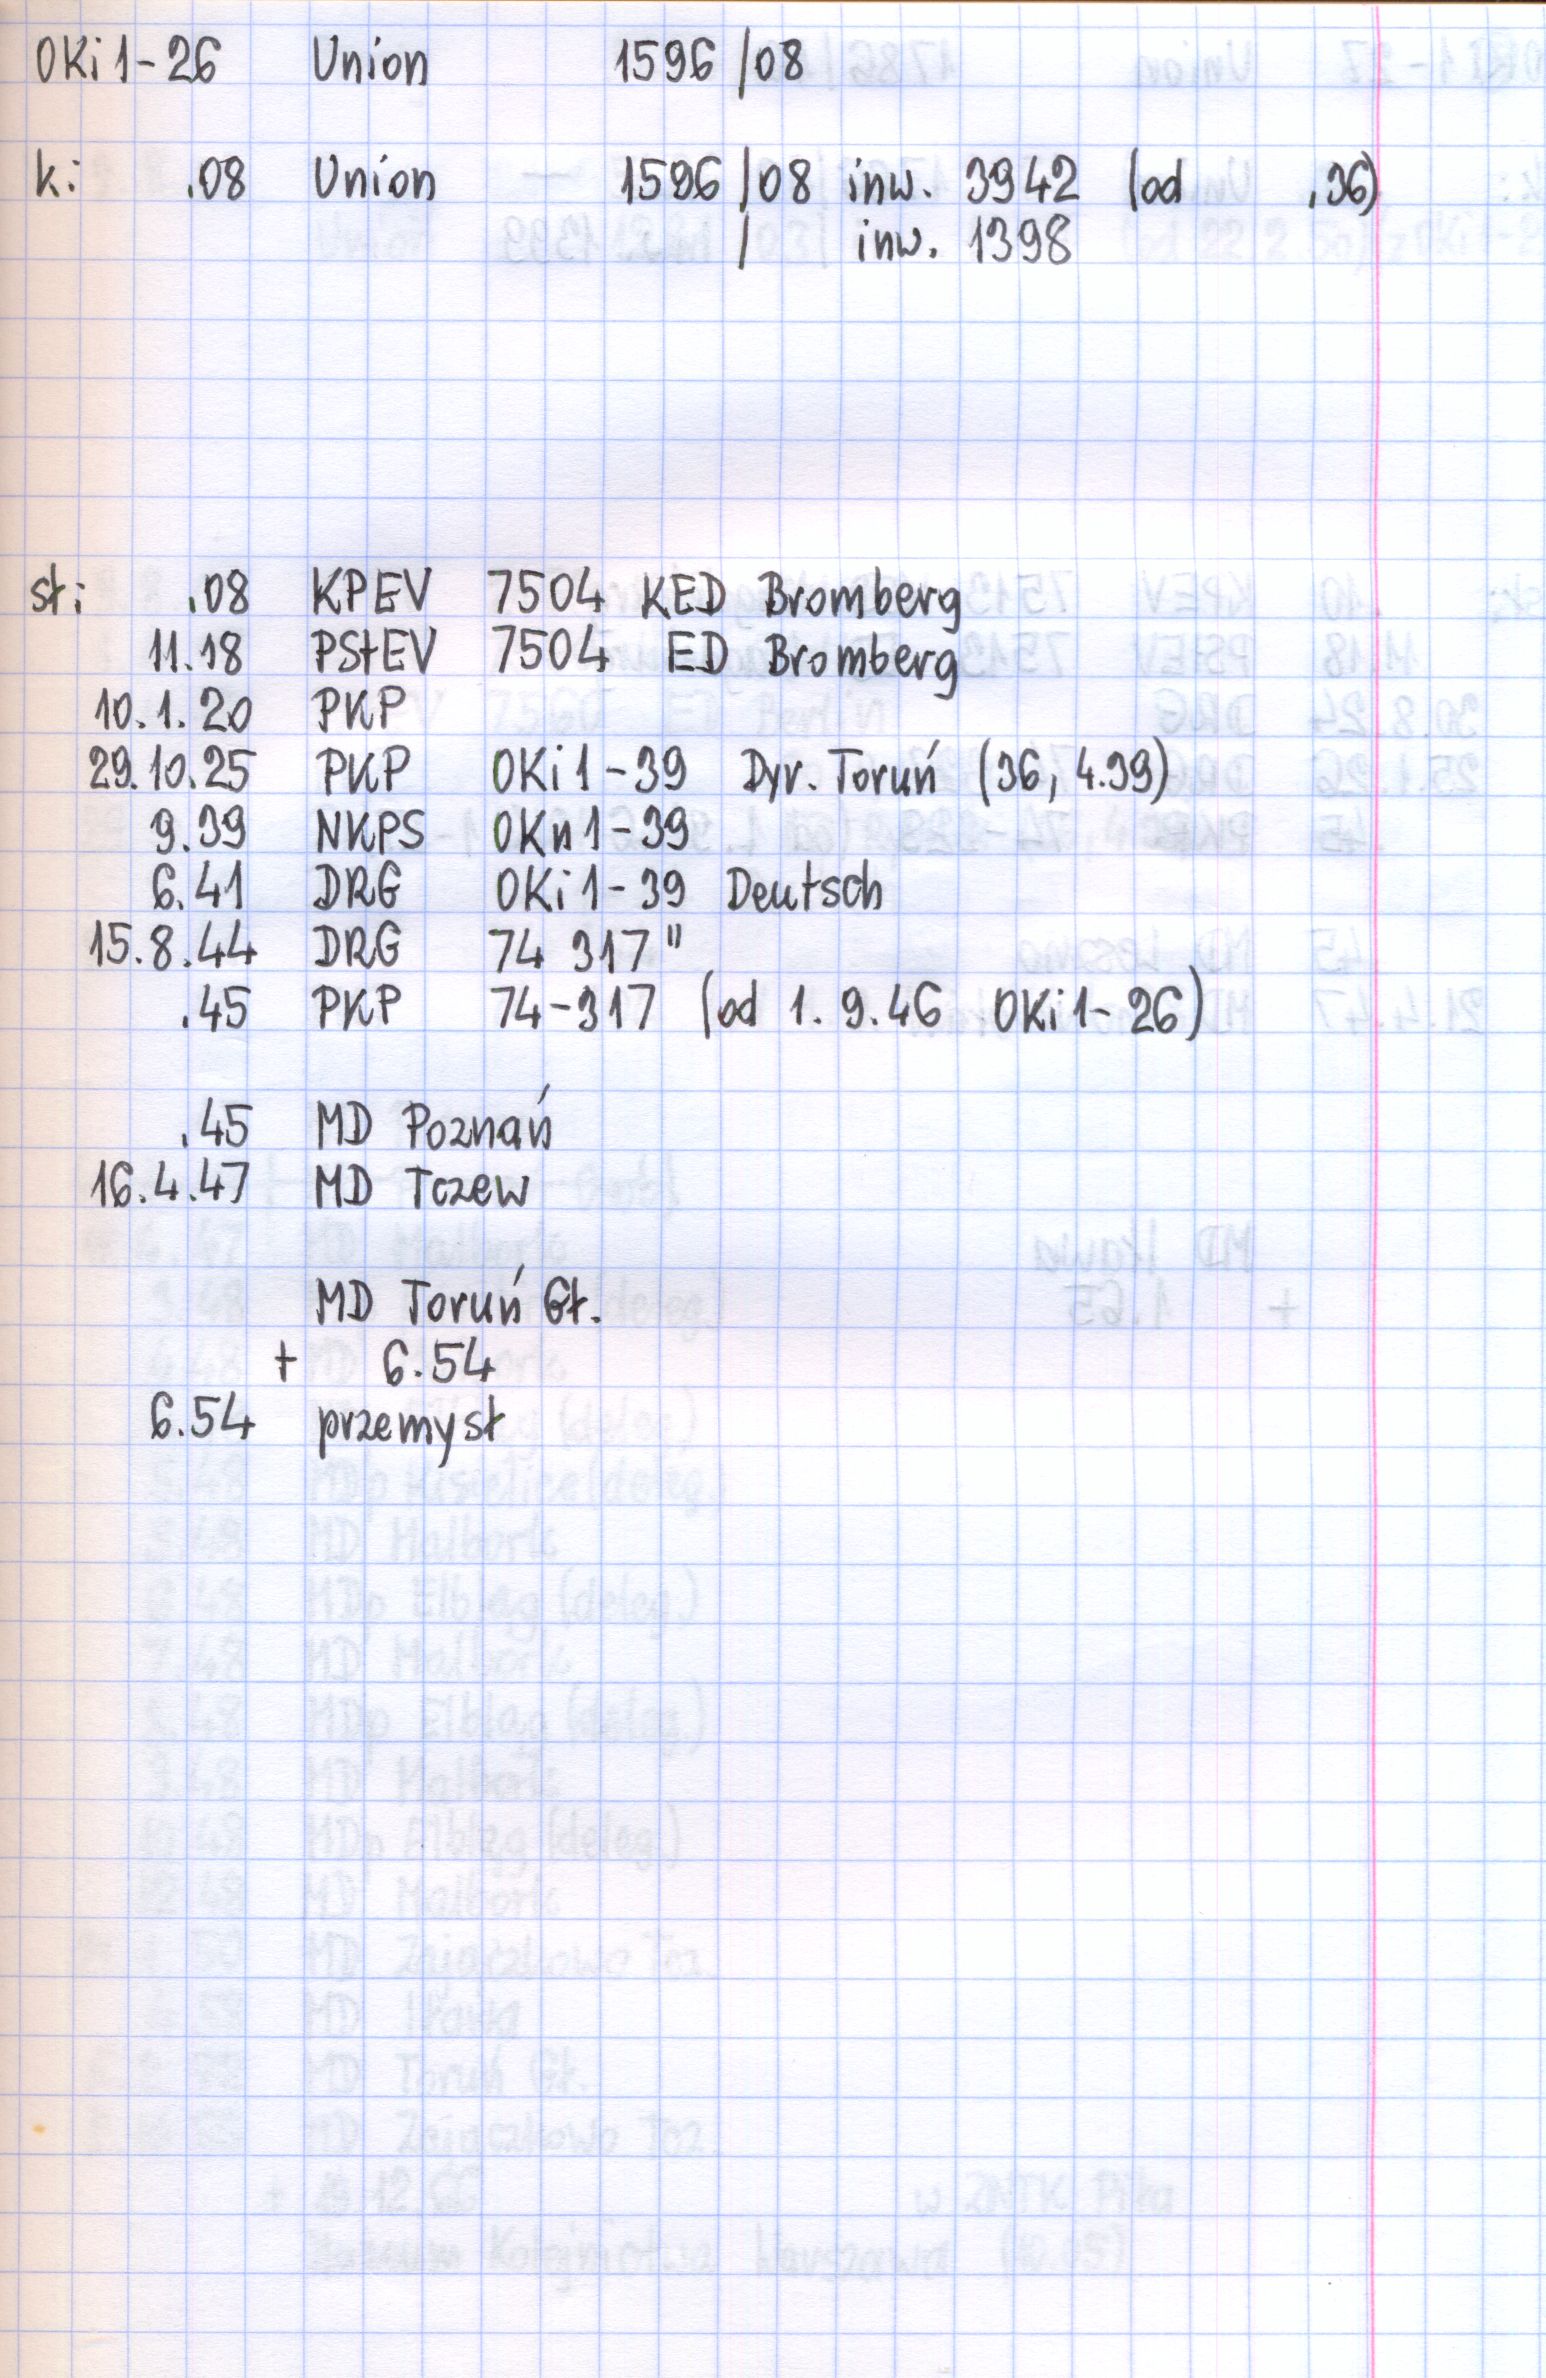 OKi1-26 Union 1596/08
k: .08 Union 1596/08 inw. 3942 (od .36)
/ inw. 1398
st: .08 KPEV 7504 KED Bromberg
11.18 PStEV 7504 ED Bromberg
10.1.20 PKP
29.10.25 PKP OKi1-39 Dyr. Toruń (36, 4.39)
9.39 NKPS OKn1-39
6.41 DRG OKi1-39 Deutsch
15.8.44 DRG 74 317"
.45 PKP 74-317 (od 1.9.46 OKi1-26)
.45 MD Poznań
16.4.47 MD Tczew
MD Toruń Gł.
+ 6.54
6.54 przemysł